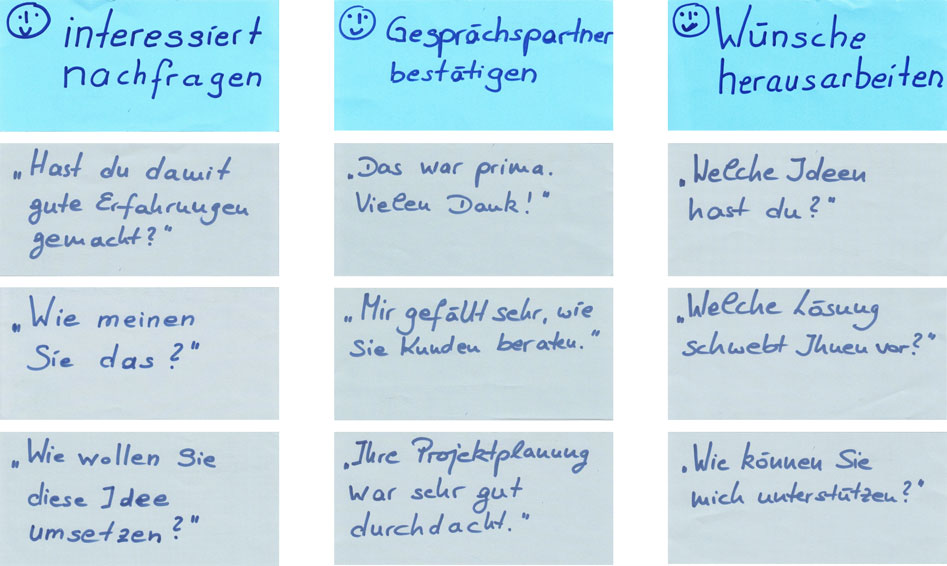 interessiert
nachfragen
„Hast du damit
gute Erfahrungen
gemacht?"
„Wie meinen
Sie das?"
„Wie wollen Sie
diese Idee
umsetzen?"
Gesprächspartner
bestätigen
„Das war prima.
Vielen Dank!"
„Mir gefällt sehr, wie
Sie Kunden beraten."
„Ihre Projektplanung
war sehr gut
durchdacht."
Wünsche
herausarbeiten
„Welche Ideen
hast du?"
„Welche Lösung
schwebt Ihnen vor?"
„Wie können Sie
mich unterstützen?"